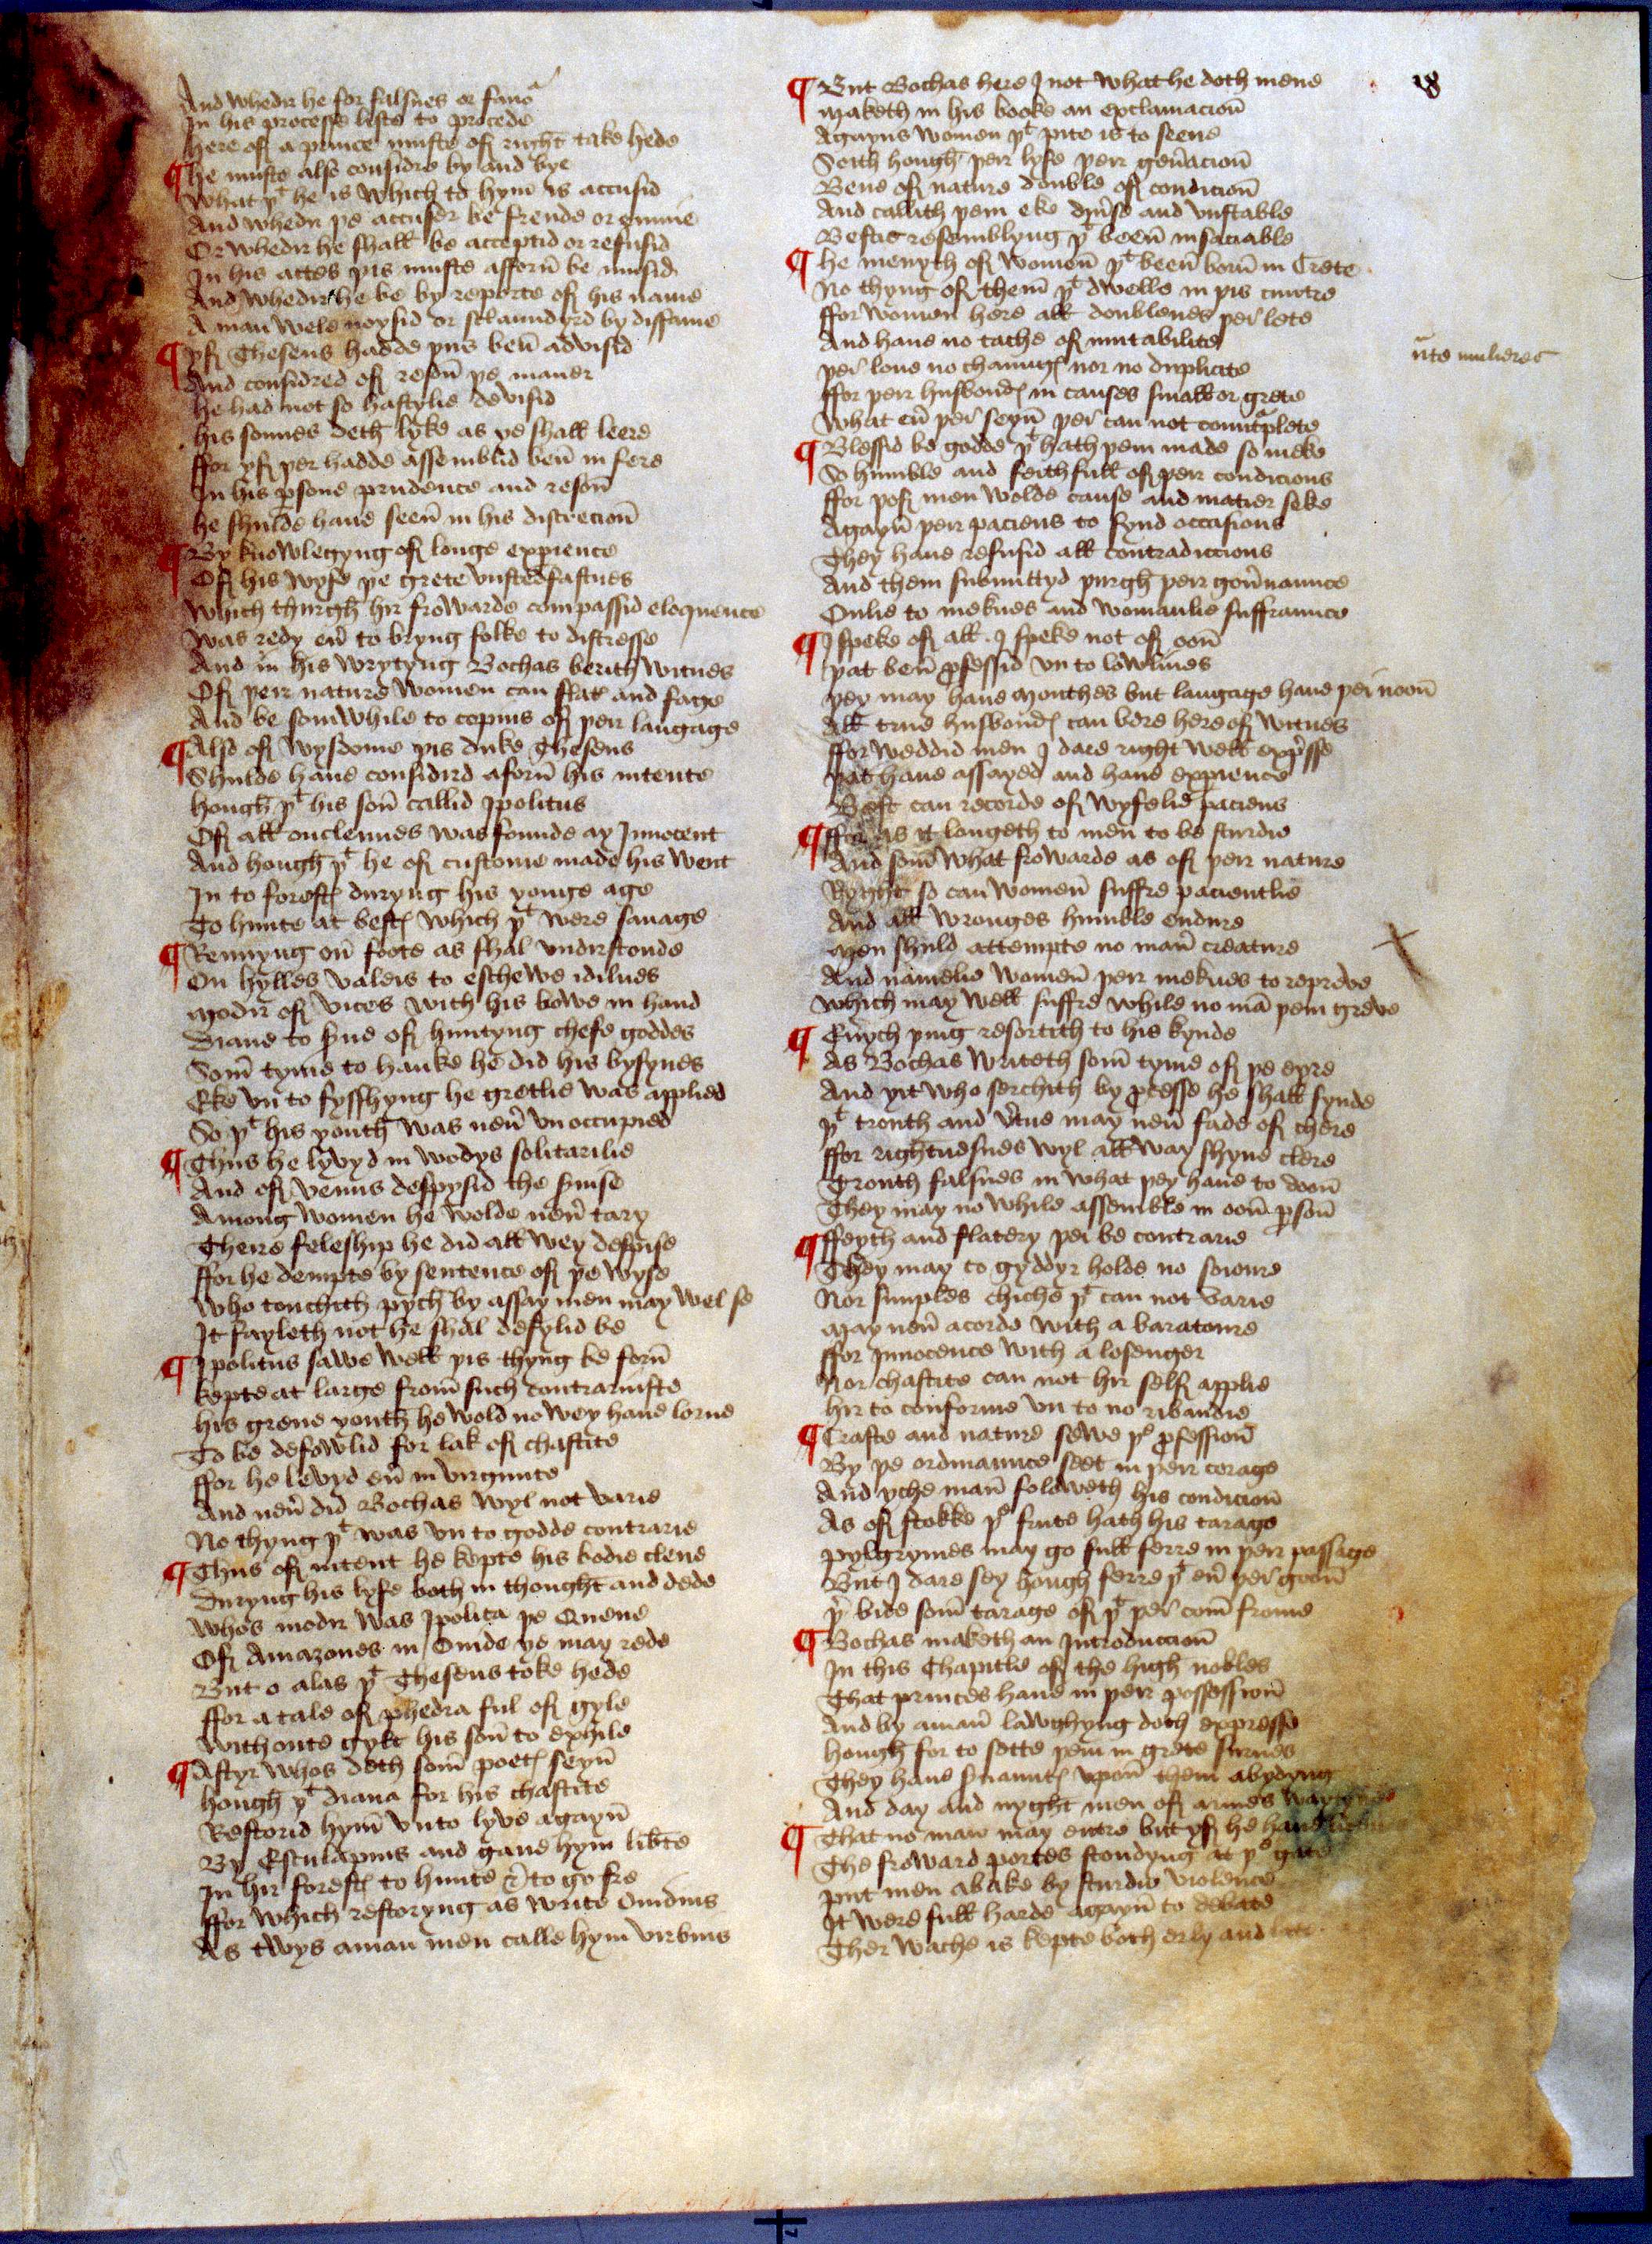 And whedir he for falsnes or fauoᷣ
In his processe liste to procede
here of a prince muste of right take hede
¶ he muste also considre by and bye
What þᵗ he is which to hym is accusid
And whedir þe accuser be frende or enmie
Or whedir he shall be acceptid or refusid
In his actes þis muste afforn̄ be musid
And whedir he be by reporte of his name
A man wele noysid or sclaundyrd by diffame
¶ yf Theseus hadde þus ben̄ advisid
And considred of reson̄ þe maner
he had not so hastylie devisid
his sonnes deth lyke as ye shall leere
ffor yf þer hadde assemblid ben̄ in fere
In his ꝑsone prudence and reson̄
he shulde haue seen̄ in his discrecion̄
¶ By knowlegyng of longe expience
Of his wyfe þe grete vnstedfastnes
which thurgh hir frowarde compassid eloquence
was redy eū to bryng folke to distresse
And in his wrytyng Bochas berith witnes
Of þeir nature women can flatᷣ and fage
And be somwhile to copius of þeir langage
¶ Also of wysdome þis duke Theseus
Shulde haue considird aforn̄ his intente
hough þᵗ his son̄ callid Ipolitus
Of all onclennes was founde ay Innocent
And hough þᵗ he of custome made his went
In to forestꝭ duryng his yonge age
To hunte at bestꝭ which þᵗ were sauage
¶ Rennyng on̄ foote as shal vndirstonde
On hylles valeis to eschewe idilnes
Modir of vices with his bowe in hand
Diane to sue of huntyng chefe goddes
Som̄ tyme to hauke he did his bysynes
Eke vn to fysshyng he gretlie was applied
So þᵗ his youth was neū vnoccupied
¶ Thus he lyvyd in wodys solitarilie
And of venus despysid the seruise
Among women he wolde neū tary
Theire feleship he did all wey despise
ffor he dempte by sentence of þe wyse
who touchith pych by assay men may wel se
It fayleth not he shal defylid be
¶ Ipolitus sawe well þis thyng be forn̄
kepte at large from̄ such contrariuste
his grene youth he wold no wey haue lorne
To be defowlid for lak of chastite
ffor he levyd eū in virginite
And neū did Bochas wyl not varie
No thyng þᵗ was vn to godde contrarie
¶ Thus of intent he kepte his bodie clene
Duryng his lyfe both in thought and dede
whos modir was Ipolita þe Quene
Of Amazones in Ouide ye may rede
But o alas þᵗ Theseus toke hede
ffor a tale of phedra ful of gyle
withoute gylt his son̄ to exhile
¶ Aftyr whos deth som̄ poetꝭ seyn̄
hough þᵗ diana for his chastite
Restorid hym̄ vnto lyve agayn̄
By Esculapius and gaue hym libᷣte
In hir forestꝭ to hunte & to go fre
ffor which restoryng as write Ouidius
As twys a man men calle hym virbius
¶ But Bochas here I not what he doth mene
maketh in his booke an exclamacion̄
Agayns women þᵗ pite is to seene
Seith hough þeir lyfe þeir gen̄acion̄
Bene of nature double of condicion̄
And callith þem eke dyūse and vnstable
Bestis resemblyng þᵗ been̄ insaciable
¶ he menyth of women̄ þᵗ been̄ born̄ in Crete
No thyng of them̄ þᵗ dwelle in þis cuntre
ffor women here all doublenes þei lete
And haue no tache of mutabilite
þei loue no chaungꝭ nor no duplicite
ffor þeir husbondꝭ in causes small or grete
What eū þei seyn̄ þei can not countᷣplete
¶ Blessid be godde þᵗ hath þem made so meke
So humble and feithfull of þeir condicions
ffor þof men wolde cause and matier seke
Agayn̄ þeir paciens to fynd occasions
They haue refusid all contradiccions
And them submittyd þurgh þeir goūnaunce
Onlie to meknes and womanlie suffraunce
¶ I speke of all. I speke not of oon̄
þat ben̄ ꝓfessid vn to lowlines
þey may haue mouthes but langage haue þei noon̄
All true husbondꝭ can bere here of witnes
ffor weddid men I dare right well expᷣsse
þat haue assayed and haue expience
Best can recorde of wyfelie paciens
¶ ffor as it longeth to men to be sturdie
And som̄ what frowarde as of þeir nature
Ryght so can women̄ suffre pacientlie
And all wronges humble endure
Men shuld attempte no man̄ creature
And namelie women̄ þeir meknes to repreve
which may well suffre while no mā þem greve
¶ Euych þing resortith to his kynde
As Bochas writeth som̄ tyme of þe eyre
And yit who serchith by ꝓcesse he shall fynde
þᵗ trouth and vᷣtue may neū fade of chere
ffor rightuesnes wyl all way shyne clere
Trouth falsnes in what þey haue to doon̄
They may no while assemble in oon̄ ꝑson̄
¶ ffeyth and flatery þei be contrarie
They may to gyddyr holde no soioure
Nor simples chiche þᵗ can not varie
May neū acorde with a baratoure
ffor Innocence with a losenger
Nor chastite can not hir self applie
hir to conforme vn to no ribaudie
¶ Crafte and nature sewe þᵉ ꝓfession̄
By þe ordinaunce seet in þeir corage
And yche man̄ foloweth his condicion̄
As of stokke þᵉ frute hath his tarage
pylgrymes may go full ferre in þeir passage
But I dare sey hough ferre þᵗ eū þei goon̄
þᷣ bide som̄ tarage of þᵗ þei com̄ frome
¶ Bochas maketh an Introduccion̄
In this Chapitle of the high nobles
That princes haue in þeir possession̄
And by a man̄ lawghyng doth expresse
hough for to sette þem in grete surnes
They haue seruauntꝭ vpon̄ them abydyng
And day and nyght men of armes waytyng
¶ That no man may entre but yf he haue
The froward portes stondyng at þᵉ gate
put men abake by sturdie violence
It were full harde agayn̄ to debate
Ther wache is kepte both erly and late
18
n̄te mulieres